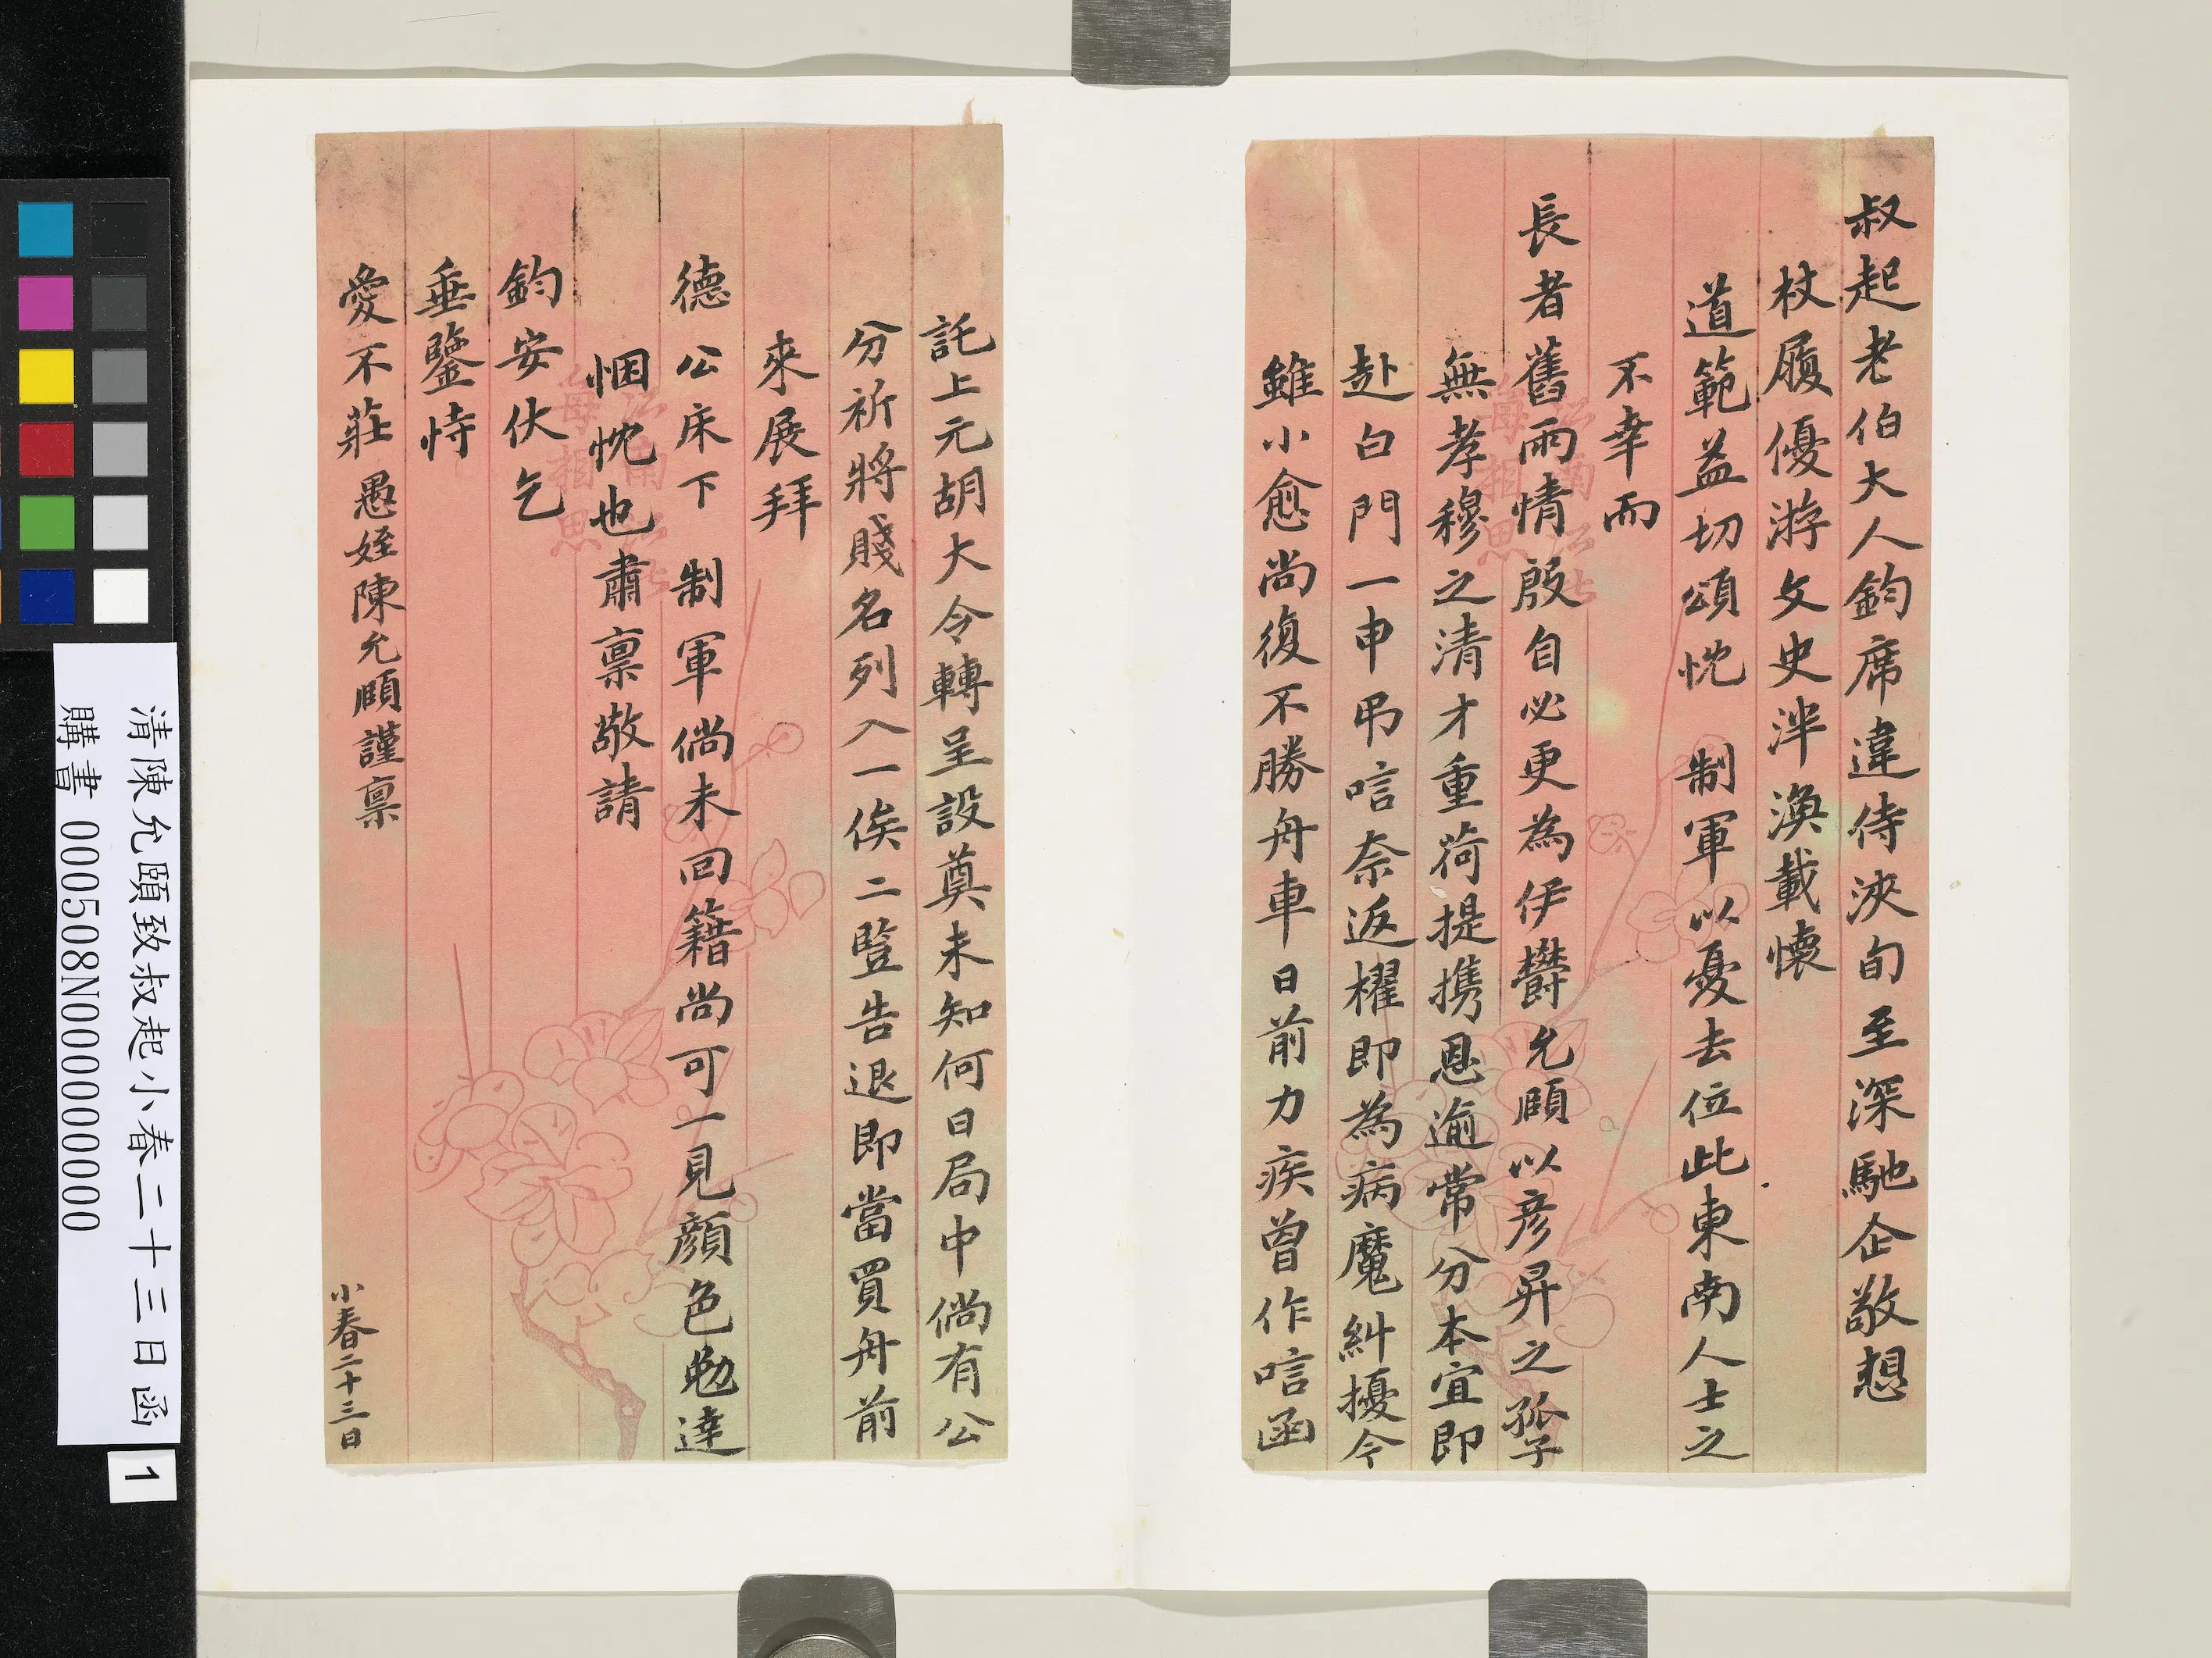 叔起老伯大人鈞席違侍浹旬至深馳企敬想
杖履優游文史泮渙載懷
道範益切頌忱 制軍以憂去位此東南人士之
不幸而
長者舊雨情殷自必更為伊鬱允頤以彥昇之孤子
無孝穆之清才重荷提攜恩逾常分本宜即
赴白門一申弔唁奈返櫂即為病魔糾擾今
雖小愈尚復不勝舟車日前力疾曾作唁函
託上元胡大令轉呈設奠未知何日局中倘有公
分祈將賤名列入一俟二豎告退即當買舟前
來展拜
德公床下 制軍倘未回籍尚可一見顏色勉達
悃忱也肅禀敬請
鈞安伏乞
垂鑒恃
愛不莊愚姪陳允頤謹禀
小春二十三日
清陳允頤致叔起小春二十三日函
購書 000508N000000000
1